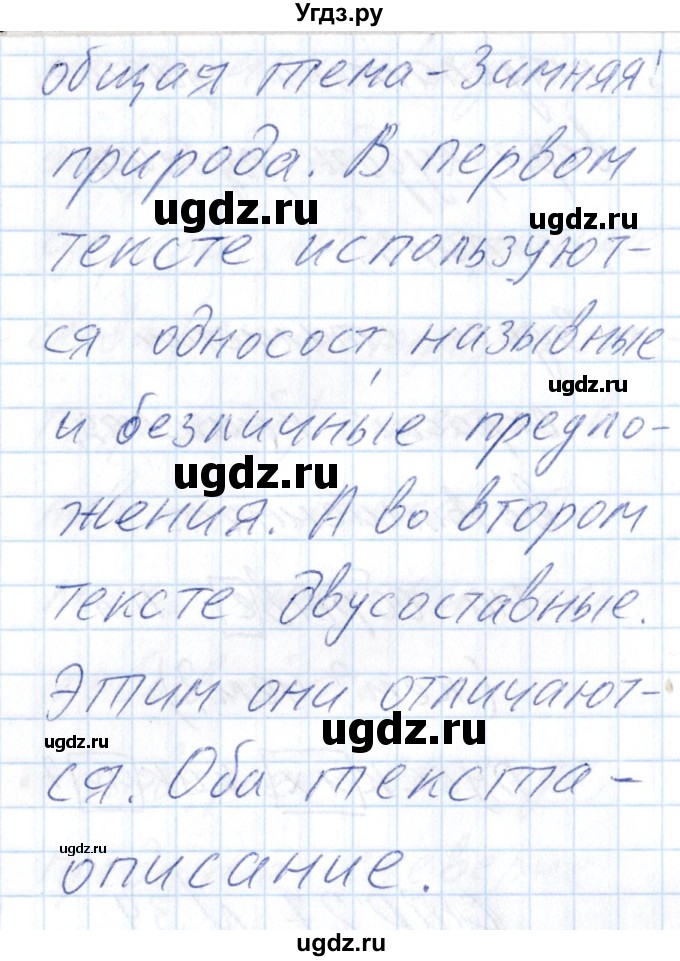 Угдз.ру
общая тема - Зимняя
природа. В первом
ugdz.ru
ugdz.ru
тексте используют-
ся односост, назывные
ugdz.ru
и безличные предло-
ugdz.ru
жения. А во втором
тексте двусоставные.
Этим они отличают-
ugdz.ru
ugdz.ru
ся. Оба текста -
ugdz.ru
описание.
ugdz.ru